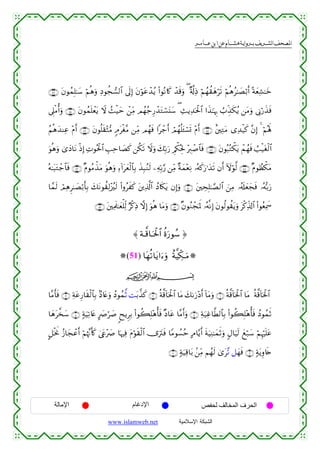 المصحف الشريف برواية هشام عن ابن عامر
خَـٰشِعَةً أَبْصَـٰرُهُمْ تَرْهَقُهُمْ ذِلَّةٌ ۖ وَقَدْ كَانُوا۟ يُدْعَوْنَ إِلَى ٱلسُّجُودِ وَهُمْ سَـٰلِمُونَ
فَذَرْنِى وَمَن يُكَذِّبُ بِهَـٰذَا ٱلْحَدِيثِ ۖ سَنَسْتَدْرِجُهُم مِّنْ حَيْثُ لَا يَعْلَمُونَ وَأُمْلِى
لَهُمْ ۚ إِنَّ كَيْدِى مَتِينٌ أَمْ تَسْـَٔلُهُمْ أَجْرًا فَهُم مِّن مَّغْرَمٍ مُّثْقَلُونَ أَمْ عِندَهُمُ
ٱلْغَيْبُ فَهُمْ يَكْتُبُونَ فَٱصْبِرْ لِحُكْمِ رَبِّكَ وَلَا تَكُن كَصَاحِبِ ٱلْحُوتِ إِذْ نَادَىٰ وَهُوَ
مَكْظُومٌ لَّوْلَآ أَن تَدَٰرَكَهُۥ نِعْمَةٌ مِّن رَّبِّهِۦ لَنُبِذَ بِٱلْعَرَآءِ وَهُوَ مَذْمُومٌ فَٱجْتَبَـٰهُ
رَبُّهُۥ فَجَعَلَهُۥ مِنَ ٱلصَّـٰلِحِينَ وَإِن يَكَادُ ٱلَّذِينَ كَفَرُوا۟ لَيُزْلِقُونَكَ بِأَبْصَـٰرِهِمْ لَمَّا
سَمِعُوا۟ ٱلذِّكْرَ وَيَقُولُونَ إِنَّهُۥ لَمَجْنُونٌ وَمَا هُوَ إِلَّا ذِكْرٌ لِّلْعَـٰلَمِينَ
﴿ سُورَةُ ٱلْحَآقَّـةِ ﴾
مَكِّيَّـةٌ وَءَايَاتُهَا (51)
بِسْمِ ٱللَّهِ ٱلرَّحْمَـٰنِ ٱلرَّحِيمِ
ٱلْحَآقَّةُ مَا ٱلْحَآقَّةُ وَمَآ أَدْرَىٰكَ مَا ٱلْحَآقَّةُ كَذَّبَتْ ثَمُودُ وَعَادٌۢ بِٱلْقَارِعَةِ فَأَمَّا
ثَمُودُ فَأُهْلِكُوا۟ بِٱلطَّاغِيَةِ وَأَمَّا عَادٌ فَأُهْلِكُوا۟ بِرِيحٍ صَرْصَرٍ عَاتِيَةٍ سَخَّرَهَا
عَلَيْهِمْ سَبْعَ لَيَالٍ وَثَمَـٰنِيَةَ أَيَّامٍ حُسُومًا فَتَرَى ٱلْقَوْمَ فِيهَا صَرْعَىٰ كَأَنَّهُمْ أَعْجَازُ نَخْلٍ
خَاوِيَةٍ فَهَل تَّرَىٰ لَهُم مِّنۢ بَاقِيَةٍ
الحرف المخالف لحفص الإدغام الإمالة
الشبكة الإسلامية www.islamweb.net